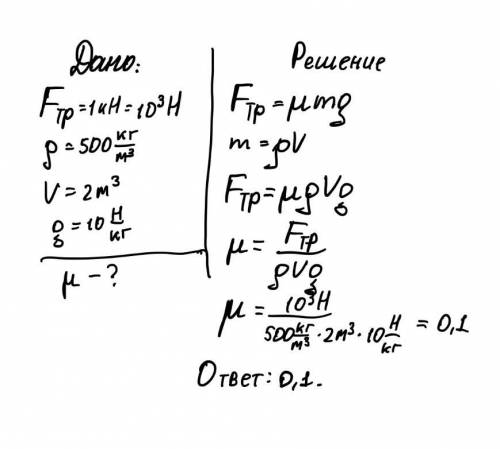 Дано:
Fтр=1кН=10³Н
ρ=500 кг/м³
V=2м³
g=10 Н/кг
μ-?
Решение
Fтр=μmg
m=ρV
Fтр=μρVg
μ= Fтр/ρVg
μ= 10³Н/500 кг/м³·2м³·10 Н/кг = 0,1
Ответ: 0,1.